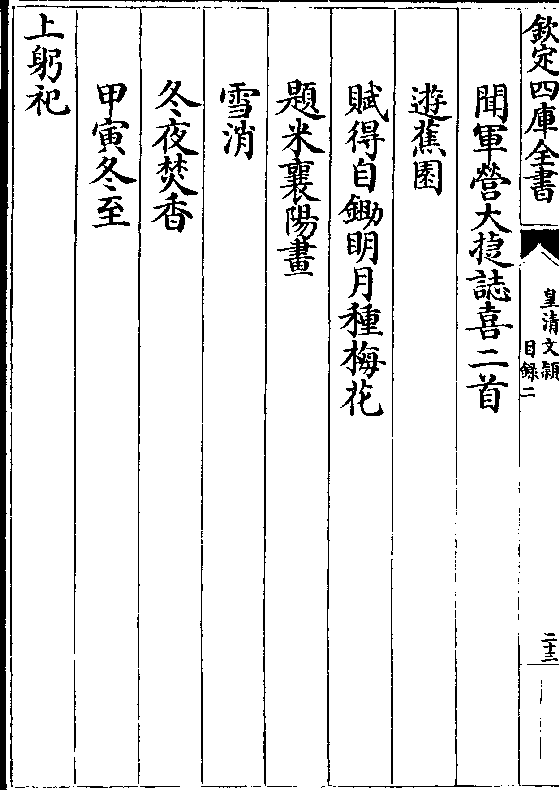 欽定四庫全書
皇清文穎
目錄二
二十三
聞軍營大捷誌喜二首
遊蕉園
賦得自鋤明月種梅花
題米襄陽畫
雪消
冬夜焚香
甲寅冬至
上躬祀